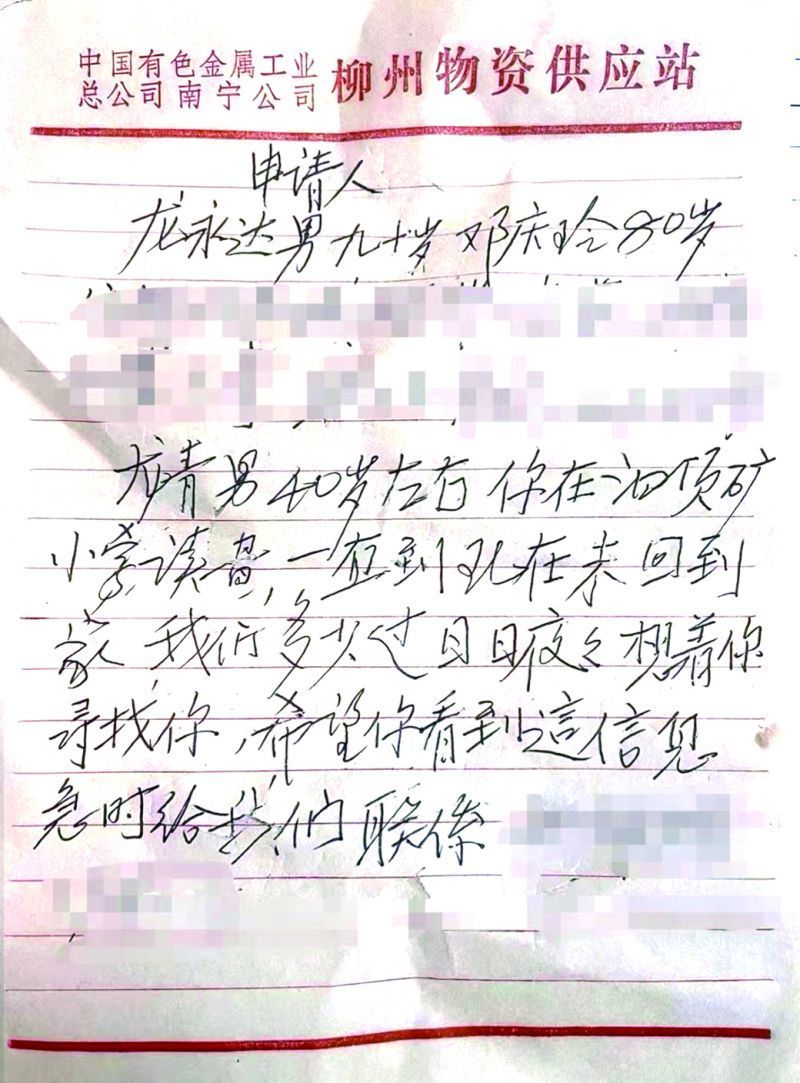 中国有色金属工业
总公司南宁公司 柳州物资供应站
申请人
龙永达男九十岁 邓庆玲80岁
龙青男40岁左右 你在泗顶矿
小学读书,一直到现在未回到
家,我们多少过日日夜々想着你
寻找你,希望你看到這信息
急时给我们联係